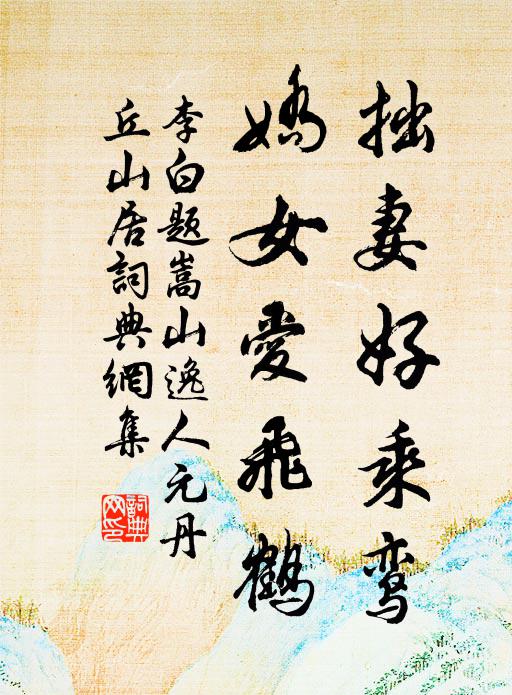 拙妻好乘鸾
嬌女愛飛鶴
李白题嵩山逸人元丹
丘山居詞典網集
詞典网印